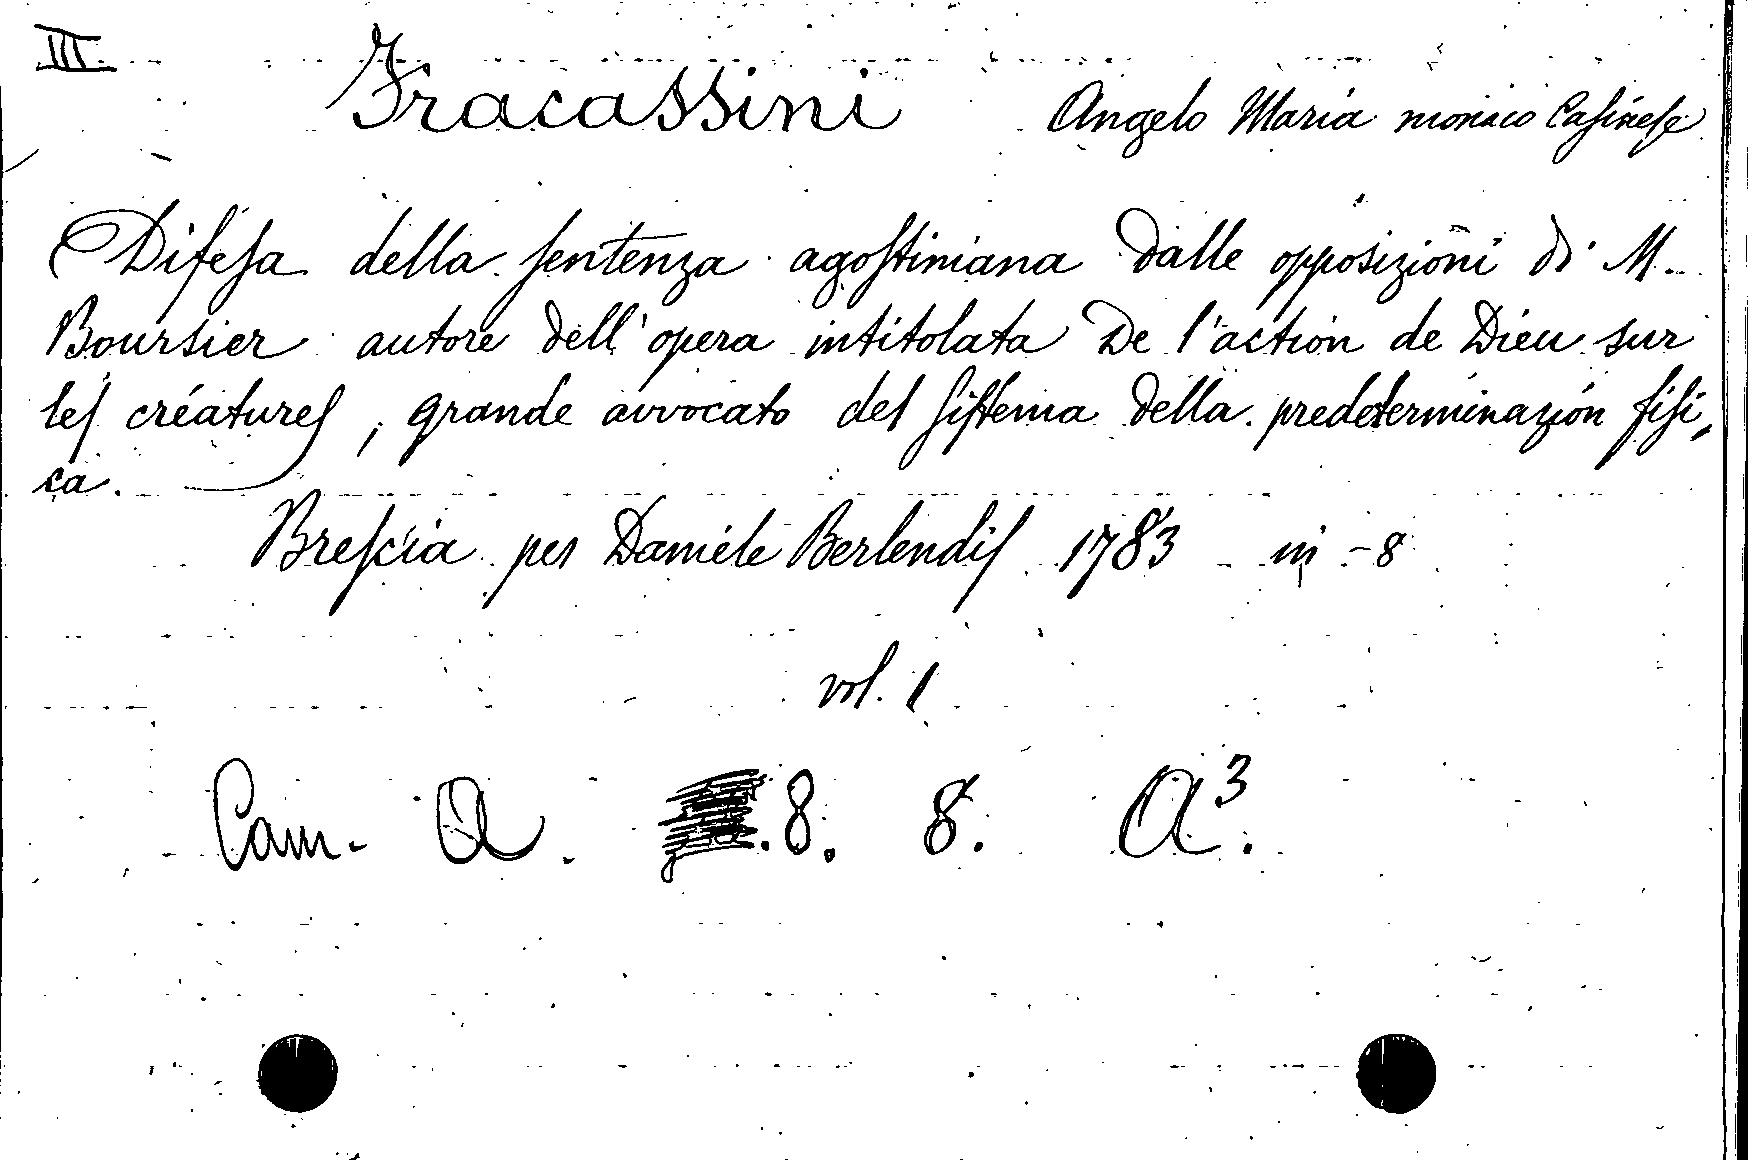 III.
Fracassini Angelo Maria monaco Casinese
Difesa della sentenza agostiniana dalle opposizioni di M.
Boursier autore dell'opera intitolata De l'action de Dieu sur
les créatures, grande avvocato del sistema della predeterminazion fisi,
ca.
Brescia per Daniele Berlendis 1783 in-8
vol. 1
Cam. A. 8. 8. A³.